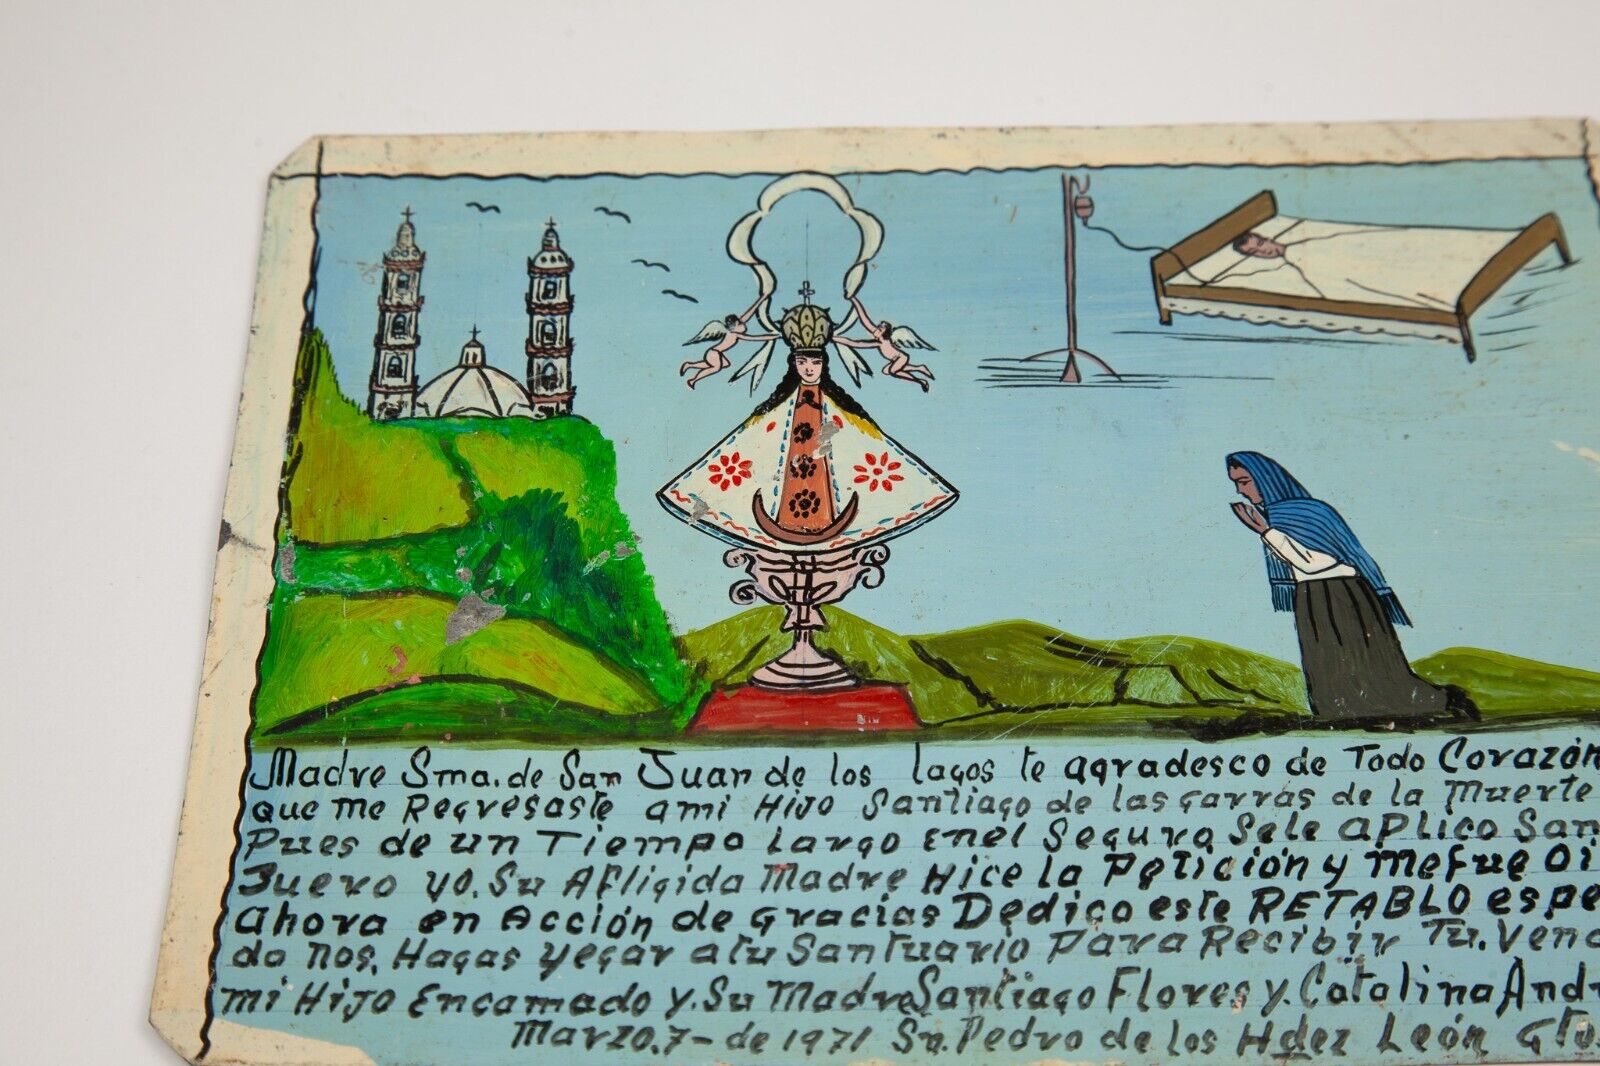 Madre Sma. de San Juan de los lagos te agradesco de Todo Corazón
que me Regresaste a mi Hijo Santiago de las garras de la Muerte
Pues de un Tiempo Largo En el Seguro Sele aplico San
Suero yo. Su Afligida Madre Hice la Petición y me fue Oi
Ahora en Acción de Gracias Dedico este RETABLO espe
do nos, Hagas yegar a tu Santuario Para Recibir Tu. Vend
mi Hijo Encamado y. Su Madre Santiago Flores y. Catalina Andr
Marzo. 7- de 1971 Sn. Pedro de los Hdez León Gto.